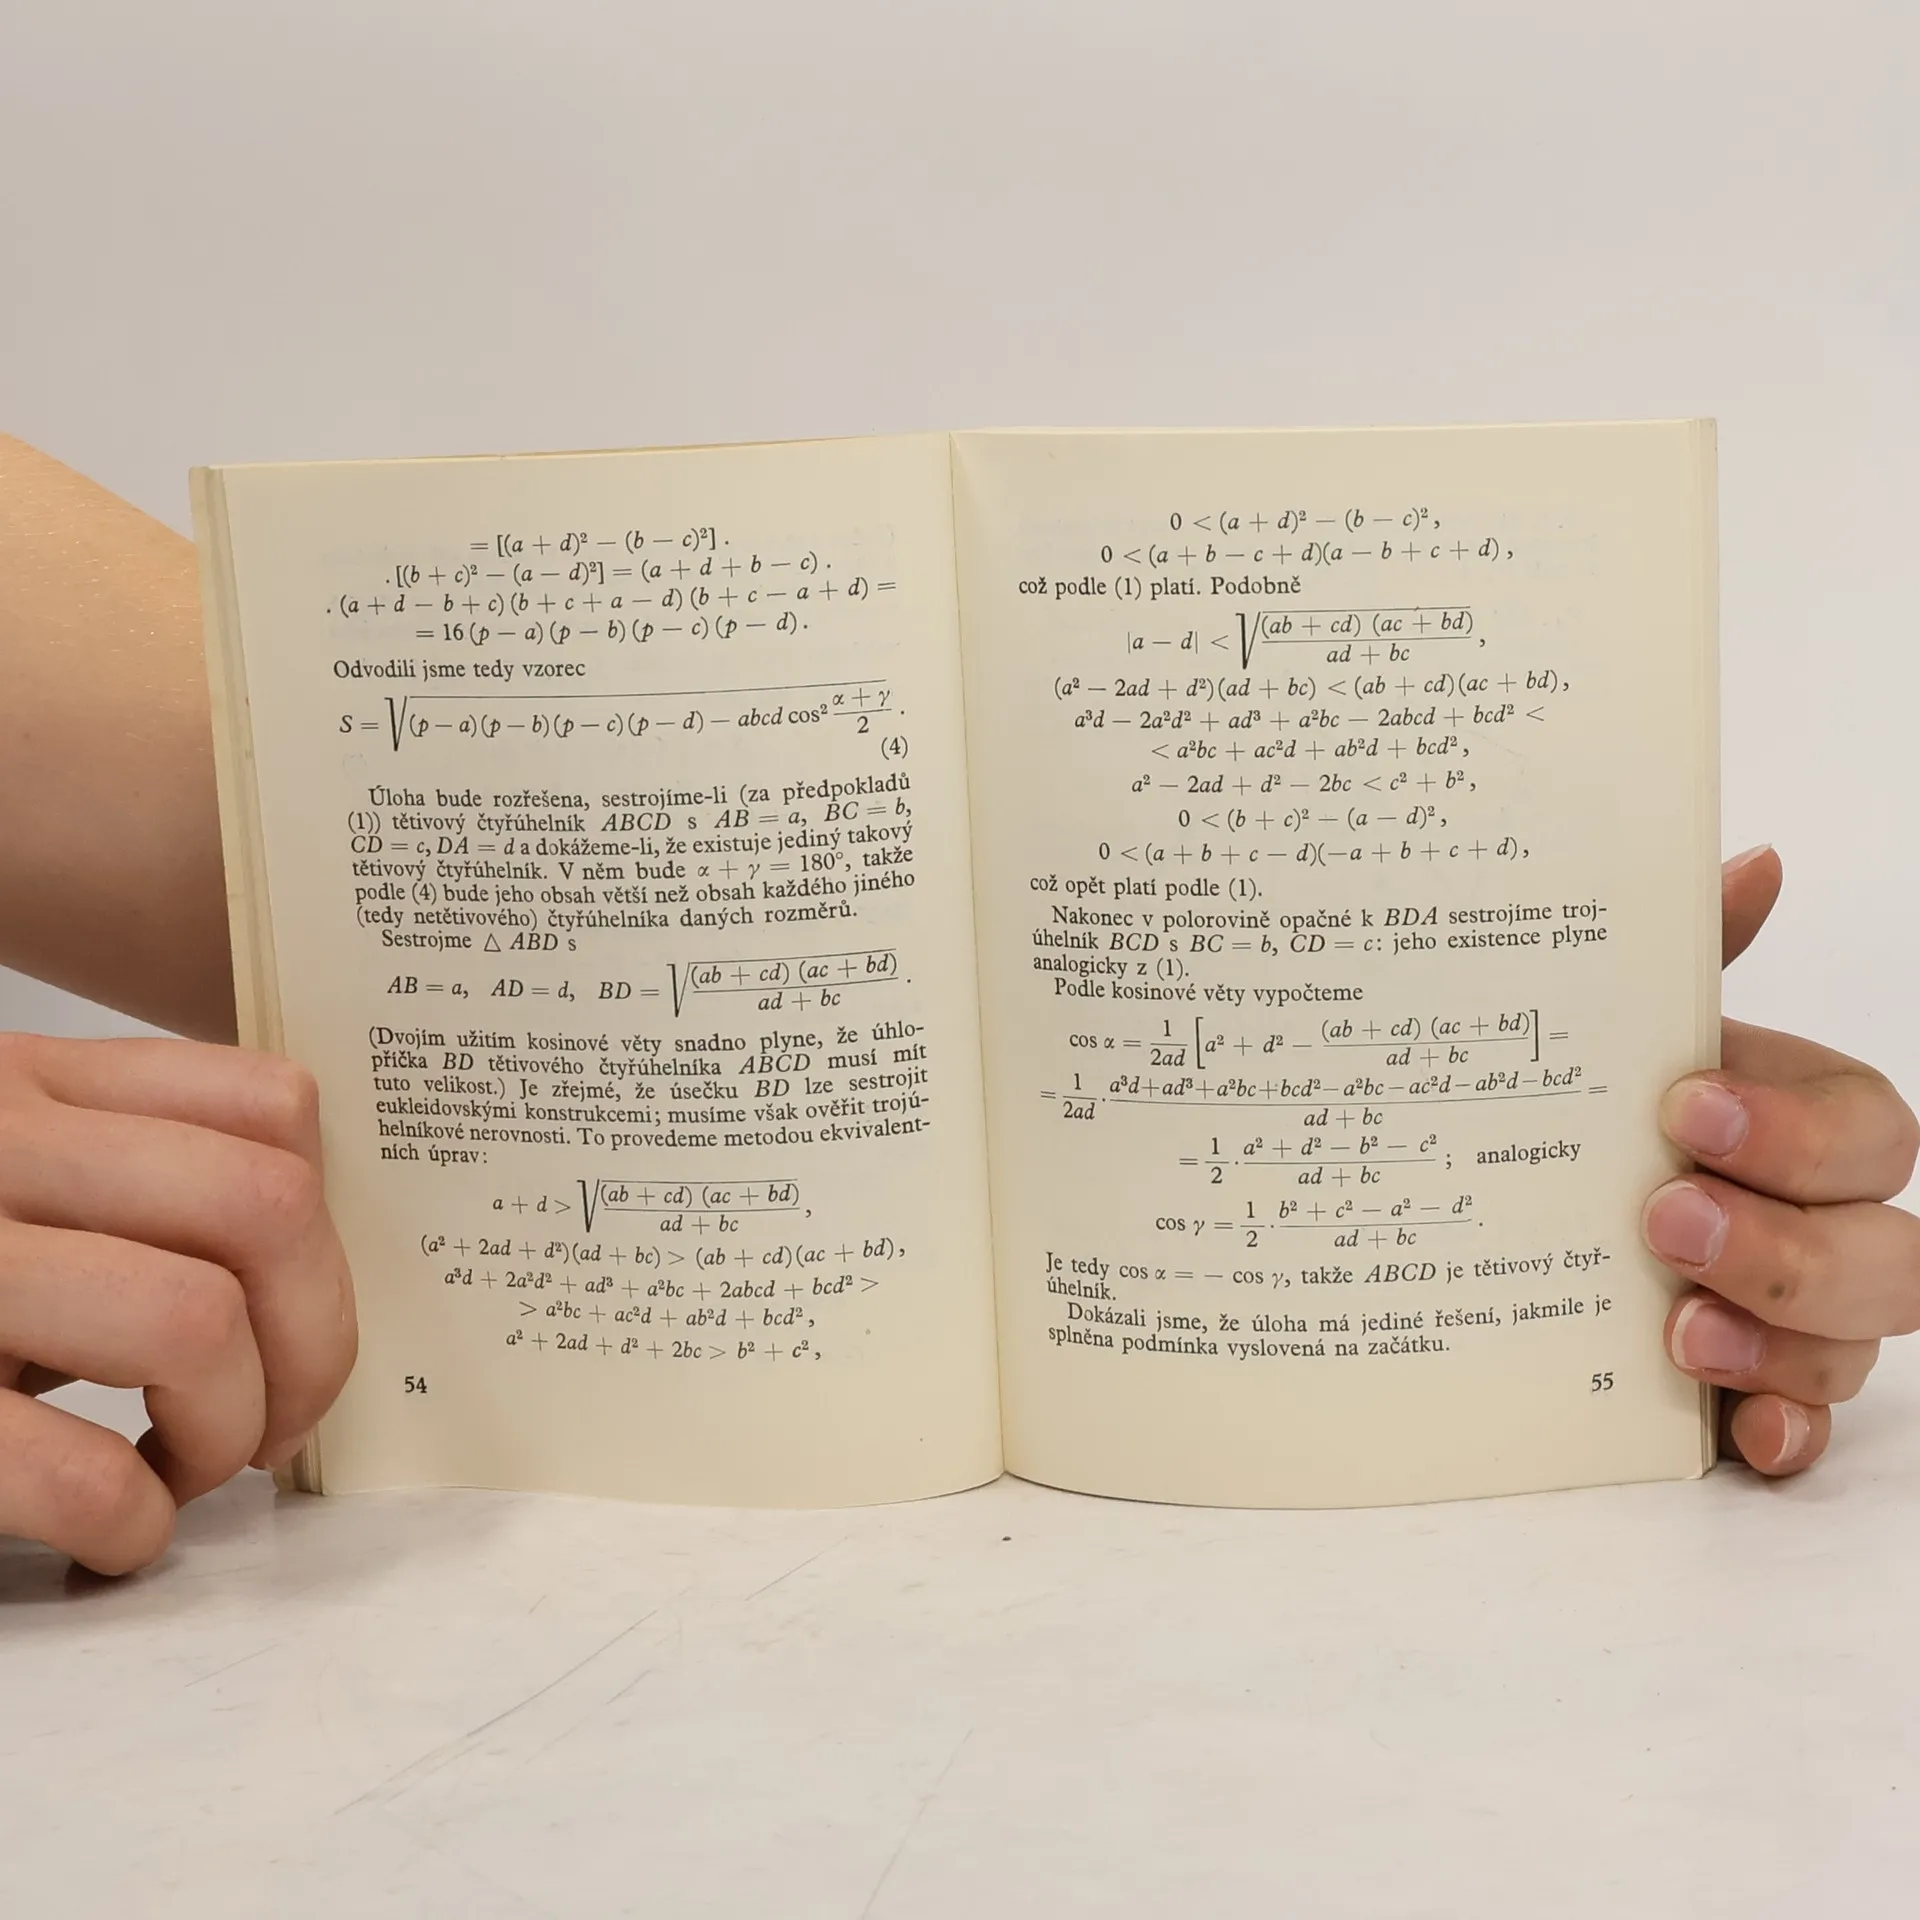 = [(a + d)² — (b — c)²] .
. [(b + c)² — (a — d)²] = (a + d + b — c) .
. (a + d — b + c) (b + c + a — d) (b + c — a + d) =
= 16 (p — a) (p — b) (p — c) (p — d) .
Odvodili jsme tedy vzorec
S = √((p — a) (p — b) (p — c) (p — d) — abcd cos² (α + γ)/2) .
(4)
Úloha bude rozřešena, sestrojíme-li (za předpokladů
(1)) tětivový čtyřúhelník ABCD s AB = a, BC = b,
CD = c, DA = d a dokážeme-li, že existuje jediný takový
tětivový čtyřúhelník. V něm bude α + γ = 180°, takže
podle (4) bude jeho obsah větší než obsah každého jiného
(tedy netětivového) čtyřúhelníka daných rozměrů.
Sestrojme △ ABD s
AB = a, AD = d, BD = √((ab + cd) (ac + bd)/(ad + bc)) .
(Dvojím užitím kosinové věty snadno plyne, že úhlo-
příčka BD tětivového čtyřúhelníka ABCD musí mít
tuto velikost.) Je zřejmé, že úsečku BD lze sestrojit
eukleidovskými konstrukcemi; musíme však ověřit trojú-
helníkové nerovnosti. To provedeme metodou ekvivalent-
ních úprav:
a + d > √((ab + cd) (ac + bd)/(ad + bc)) ,
(a² + 2ad + d²)(ad + bc) > (ab + cd)(ac + bd) ,
a³d + 2a²d² + ad³ + a²bc + 2abcd + bcd² >
> a²bc + ac²d + ab²d + bcd² ,
a² + 2ad + d² + 2bc > b² + c² ,
54
0 < (a + d)² — (b — c)² ,
0 < (a + b — c + d)(a — b + c + d) ,
což podle (1) platí. Podobně
|a — d| < √((ab + cd) (ac + bd)/(ad + bc)) ,
(a² — 2ad + d²)(ad + bc) < (ab + cd)(ac + bd) ,
a³d — 2a²d² + ad³ + a²bc — 2abcd + bcd² <
< a²bc + ac²d + ab²d + bcd² ,
a² — 2ad + d² — 2bc < c² + b² ,
0 < (b + c)² — (a — d)² ,
0 < (a + b + c — d)(—a + b + c + d) ,
což opět platí podle (1).
Nakonec v polorovině opačné k BDA sestrojíme troj-
úhelník BCD s BC = b, CD = c: jeho existence plyne
analogicky z (1).
Podle kosinové věty vypočteme
cos α = 1/2ad [a² + d² — (ab + cd) (ac + bd)/(ad + bc)] =
= 1/2ad . (a³d + ad³ + a²bc + bcd² — a²bc — ac²d — ab²d — bcd²)/(ad + bc) =
= 1/2 . (a² + d² — b² — c²)/(ad + bc) ; analogicky
cos γ = 1/2 . (b² + c² — a² — d²)/(ad + bc) .
Je tedy cos α = — cos γ, takže ABCD je tětivový čtyř-
úhelník.
Dokázali jsme, že úloha má jediné řešení, jakmile je
splněna podmínka vyslovená na začátku.
55